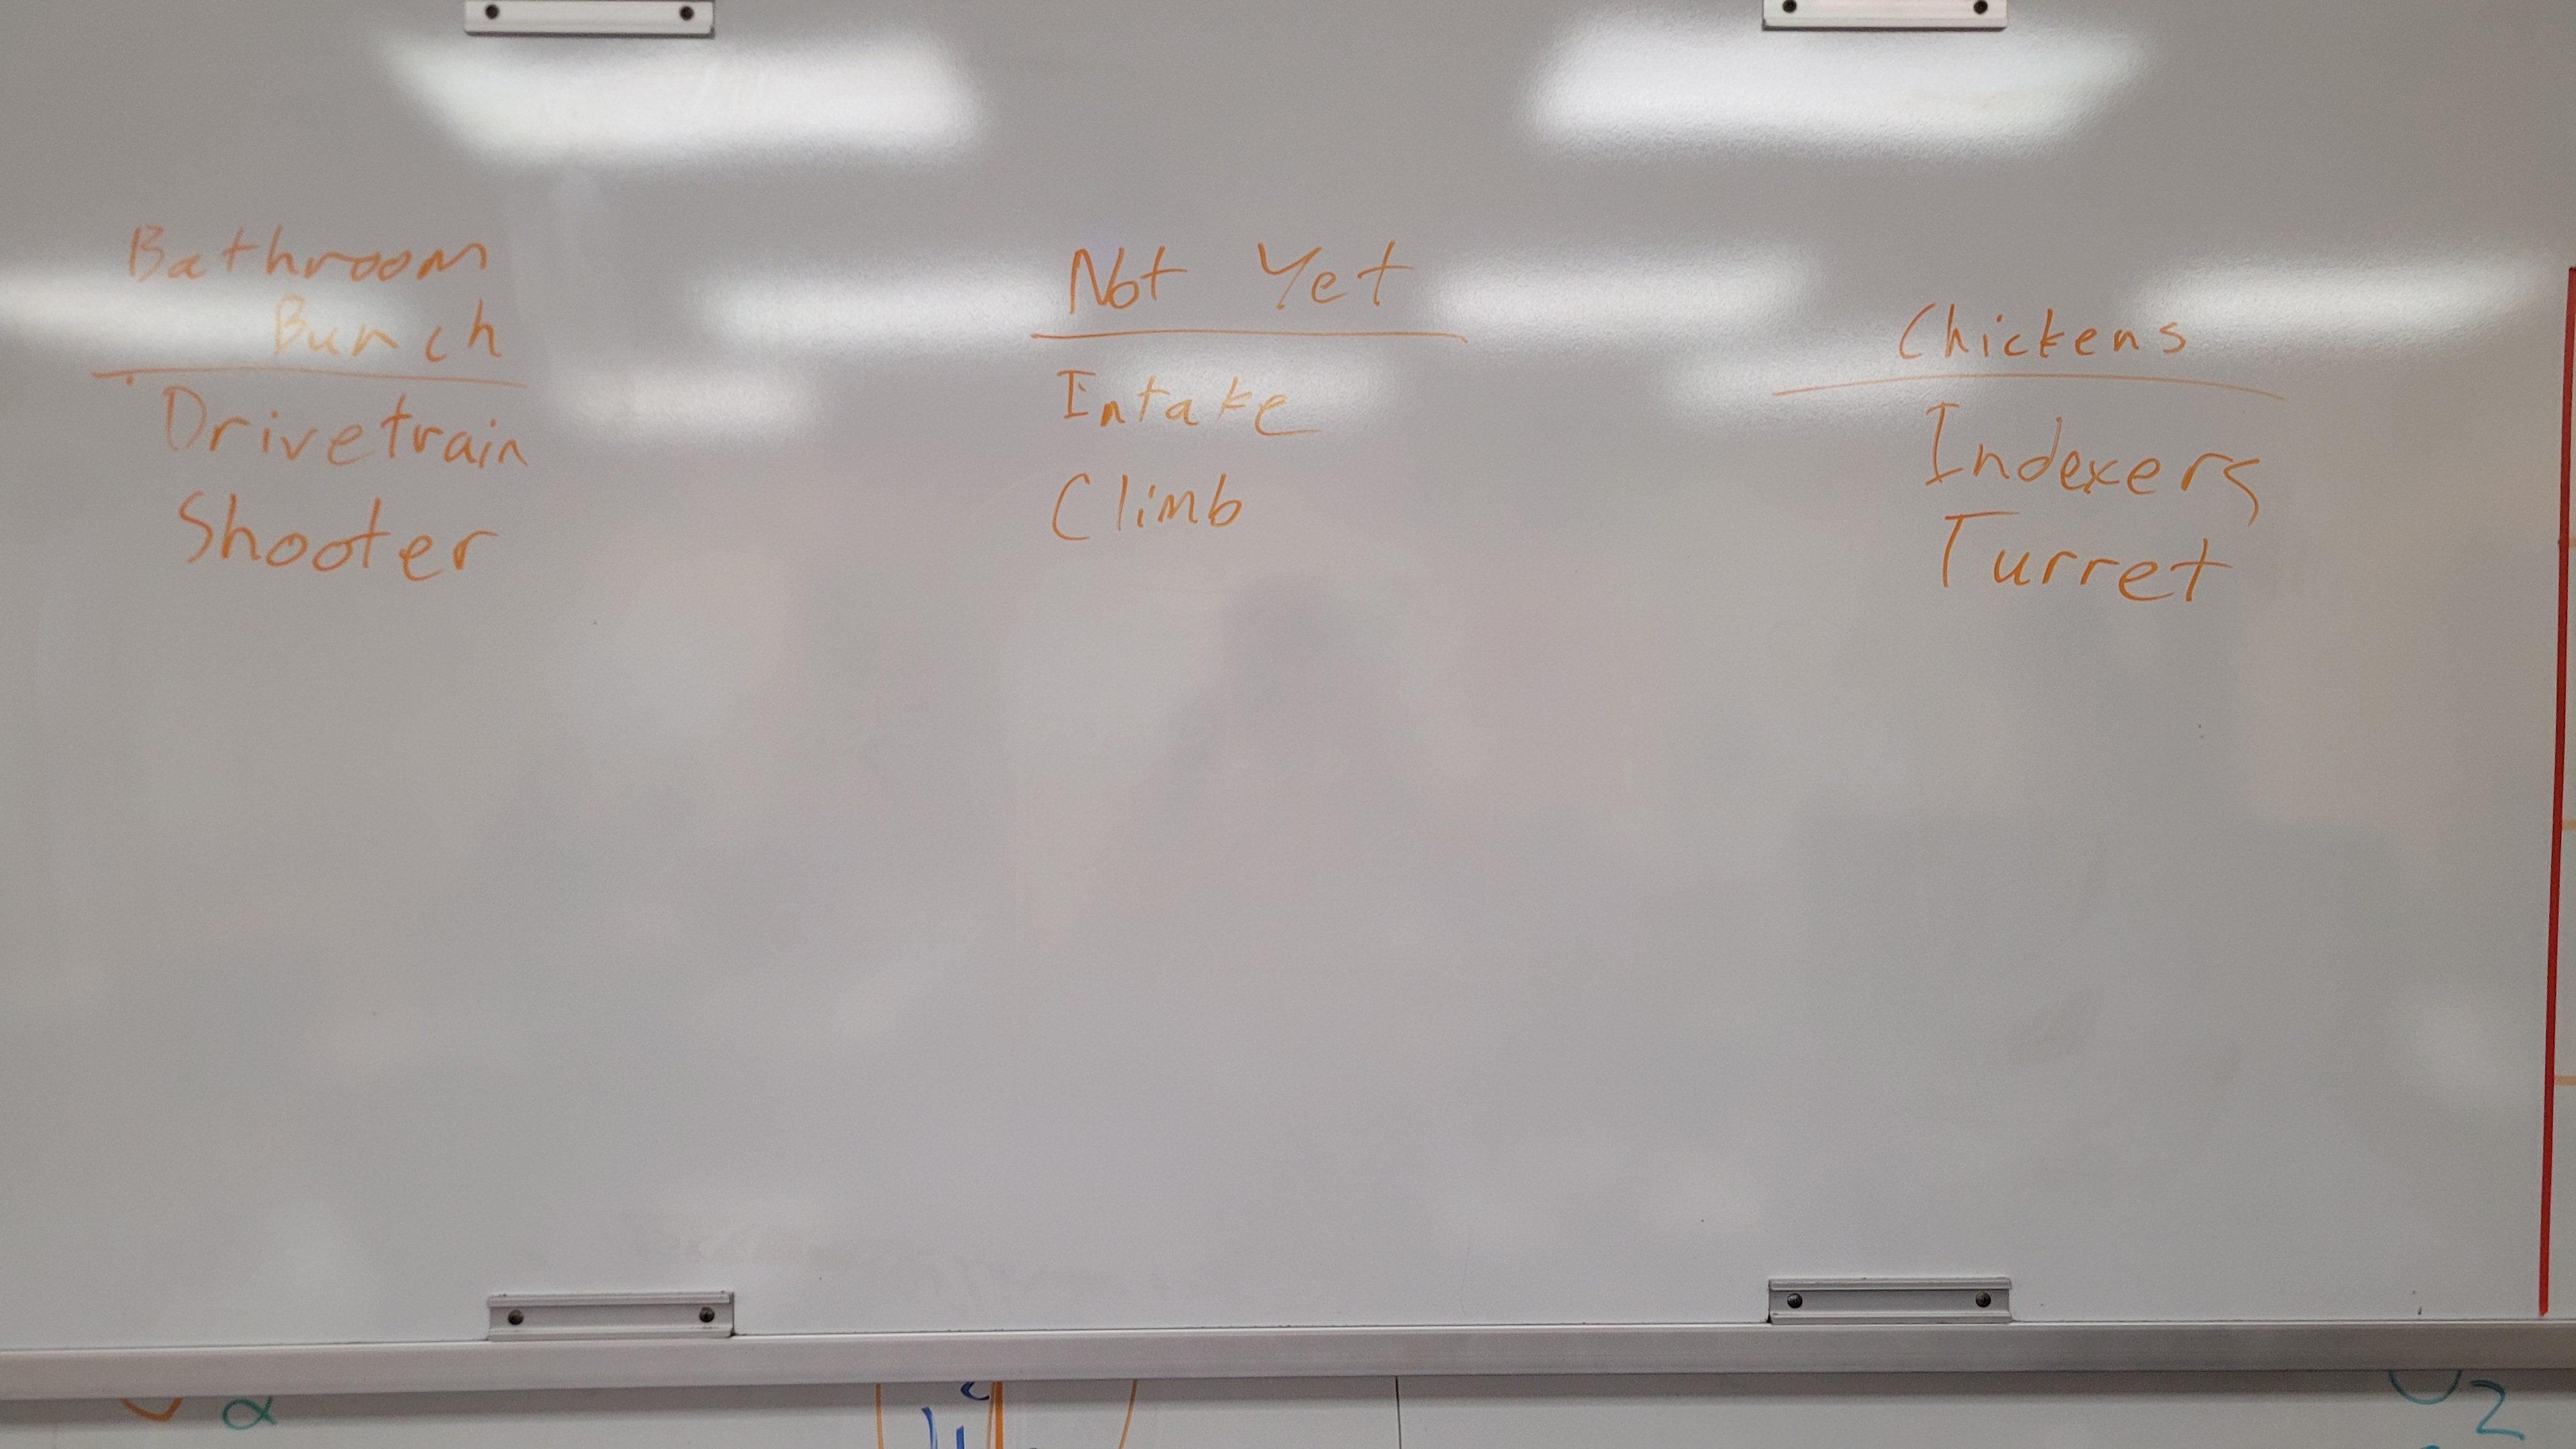 Bathroom
Bunch
Drivetrain
Shooter
Not Yet
Intake
Climb
Chickens
Indexers
Turret
α
2